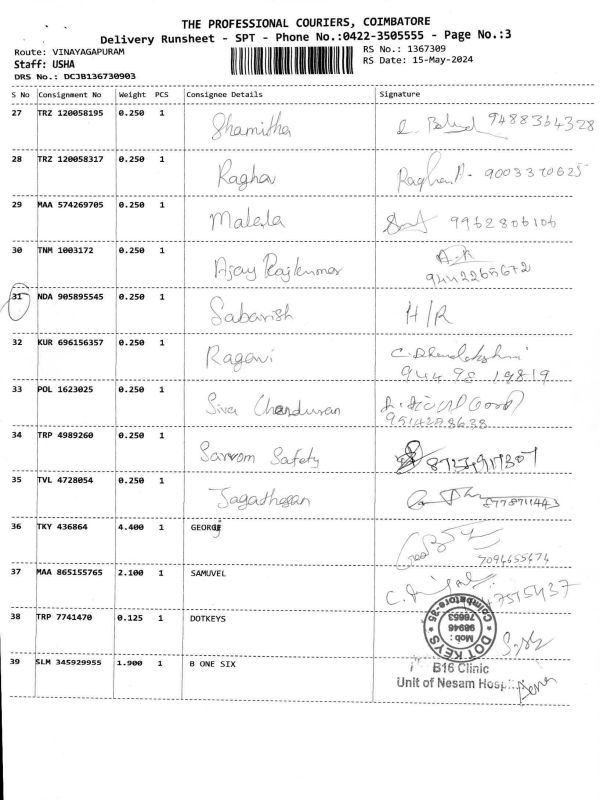 THE PROFESSIONAL COURIERS, COIMBATORE
Delivery Runsheet - SPT - Phone No.:0422-3505555 - Page No.:3
Route: VINAYAGAPURAM RS No.: 1367309
Staff: USHA RS Date: 15-May-2024
DRS No.: DCJB136730903
S No Consignment No Weight PCS Consignee Details Signature
27 TRZ 120058195 0.250 1 Shamitha 9488364328
28 TRZ 120058317 0.250 1 Raghav 9003370625
29 MAA 574269705 0.250 1 Malela 9962806106
30 TNM 1003172 0.250 1 Ajay Rajkumar A.R
9442265672
31 NDA 905895545 0.250 1 Sabarish H/R
32 KUR 696156357 0.250 1 Ragavi
944 98 19819
33 POL 1623025 0.250 1 Siva Chanduran
34 TRP 4989260 0.250 1 Sarvom Safety
35 TVL 4728054 0.250 1 Jagathesan 8778711443
36 TKY 436864 4.400 1 GEORGE
7094655674
37 MAA 865155765 2.100 1 SAMUVEL
38 TRP 7741470 0.125 1 DOTKEYS DOT KEYS Coimbatore-35 Mob: 98946 76653
39 SLM 345929955 1.900 1 B ONE SIX B16 Clinic
Unit of Nesam Hospi